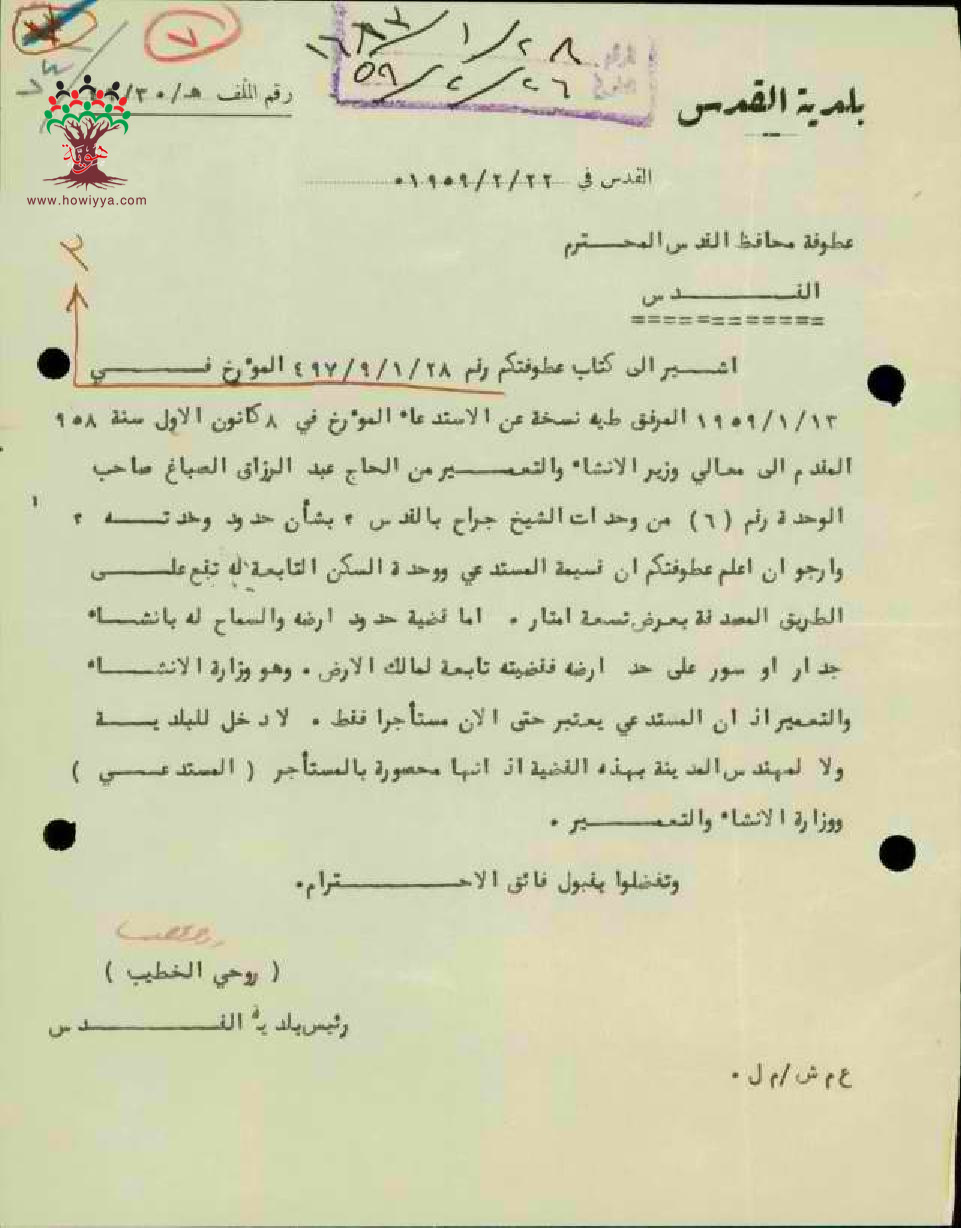 ٧
٢٨/١/
٥٩/٢/٢٦
بلدية القدس
رقم الملف هـ/٣٠/
هوية
www.howiyya.com
القدس في ١٩٥٩/٢/٢٢.
عطوفة محافظ القدس المحـــترم
القـــــــدس
============
٢
اشـــير الى كتاب عطوفتكم رقم ٤٩٧/٩/١/٢٨ المؤرخ فـــــي
١٩٥٩/١/١٣ المرفق طيه نسخة عن الاستدعاء المؤرخ في ٨ كانون الاول سنة ٩٥٨
المقدم الى معالي وزير الانشاء والتعمـــــير من الحاج عبد الرزاق الصباغ صاحب
الوحدة رقم (٦) من وحدات الشيخ جراح بالقدس ؟ بشأن حدود وحدتـــه ؟
وارجو ان اعلم عطوفتكم ان قسيمة المستدعي ووحدة السكن التابعة له تقع علــــى
الطريق المصدقة بعرض تسعة امتار . اما قضية حدود ارضه والسماح له بانشـــاء
جدار او سور على حد ارضه فقضيته تابعة لمالك الارض . وهو وزارة الانشـــــاء
والتعمير اذ ان المستدعي يعتبر حتى الان مستأجرا فقط . لا دخل للبلديـــة
ولا لمهندس المدينة بهذه القضية اذ انها محصورة بالمستأجر ( المستدعـــي )
ووزارة الانشاء والتعمــــــير .
وتفضلوا بقبول فائق الاحـــــــــترام.
( روحي الخطيب )
رئيس بلدية القـــــــــدس
ع م ش/م ل .